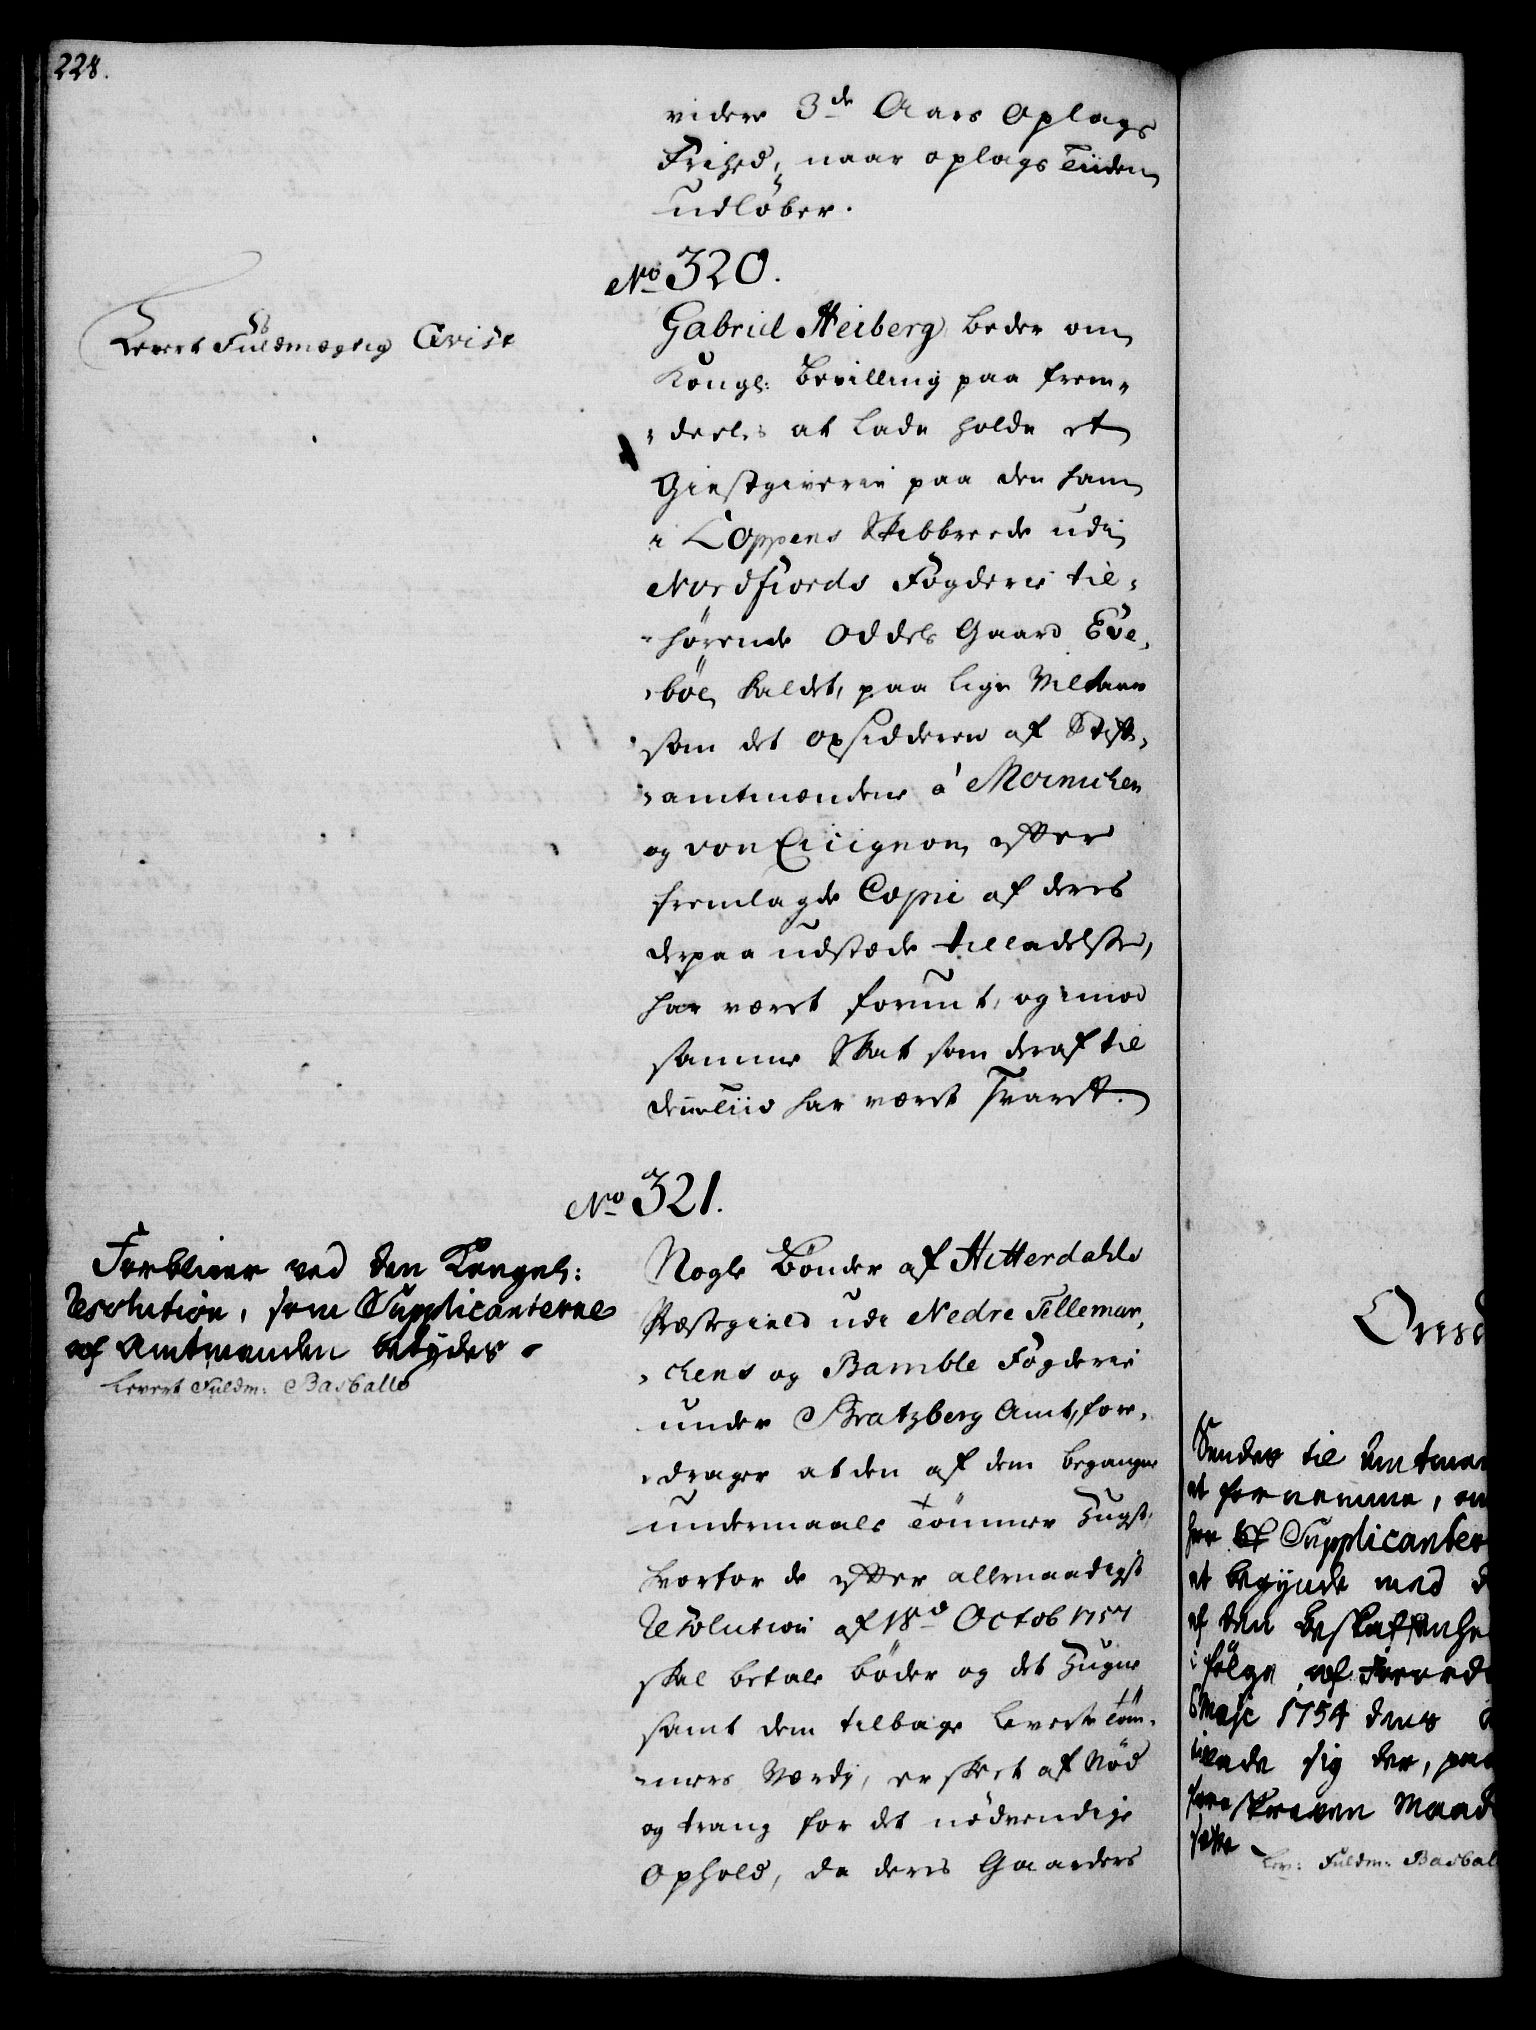 228.
videre 3de Aars Oplags
Frihed, naar oplags Tiiden
udløber.
No 320.
Levert Fuldmægtig Qvist
Gabriel Heiberg beder om
Kongl: Bevilling paa frem-
deeles at lade holde et
Giestgiverie paa den ham
i Eoppens Skibbreede udi
Nordfiords Fogderie til-
hørende Oddels Gaard Eve-
böe kaldet, paa lige Vilkaar
som det Opsidderen af Stift-
amtmændene á Møinichen
og von Cicignon efter
fremlagde Copie af deres
derpaa udstæde tilladelse,
har været forundt, og imod
samme Skat som deraf til
denne Tiid har været svaret.
No 321.
Forbliver ved den Kongel:
Resolution, som Supplicanterne
af Amtmanden betydes.
Levert Fuldm: Basballe
Nogle Bønder af Hitterdahls
Præstegield udi Nedre Tellemar-
chens og Bamble Fogderie
under Bratzberg Amt, fore-
drager at den af dem begangne
undermaals Tømmer Hugst,
hvorfor de efter allernaadigst
Resolution af 18de Octob 1757
skal betale bøder og det Hugne
samt dem tilbage leverte Tøm-
mers Værdj, er skeet af Nød
og trang for det nødvendige
Ophold, da deres Gaarders
Onsd
Sendes til Amtman
at fornemme, om
Supplicanter
at begynde med d
af den beskaffenhe
i følge af Forord
6 Maji 1754 dens
sig der, paa
foreskreven Maade
søge
Lev: Fuldm: Basbal